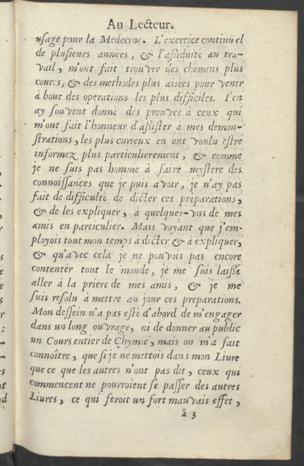 Au Lecteur.
usage pour la Medecine. L'exercice continuel
de plusieurs années, & l'assiduité au tra-
vail, m'ont fait trouver des chemins plus
cours, & des methodes plus aisées pour venir
à bout des operations les plus difficiles. I'en
ay souvent donné des preuves à ceux qui
m'ont fait l'honneur d'assister à mes demon-
strations, les plus curieux en ont voulu estre
informez plus particulierement, & comme
je ne suis pas homme à faire mystere des
connoissances que je puis avoir, je n'ay pas
fait de difficulté de dicter ces préparations,
& de les expliquer, à quelques-vns de mes
amis en particulier. Mais voyant que j'em-
ployois tout mon temps à dicter & à expliquer,
& qu'avec cela je ne pouvois pas encore
contenter tout le monde, je me suis laissé
aller à la priere de mes amis, & je me
suis resolu à mettre au jour ces preparations.
Mon dessein n'a pas esté d'abord de m'engager
dans un long ouvrage, ni de donner au public
un Cours entier de Chymie, mais on m'a fait
connoître, que si je ne mettois dans mon Livre
que ce que les autres n'ont pas dit, ceux qui
commencent ne pourroient se passer des autres
Livres, ce qui feroit un fort mauvais effet,
ã 3